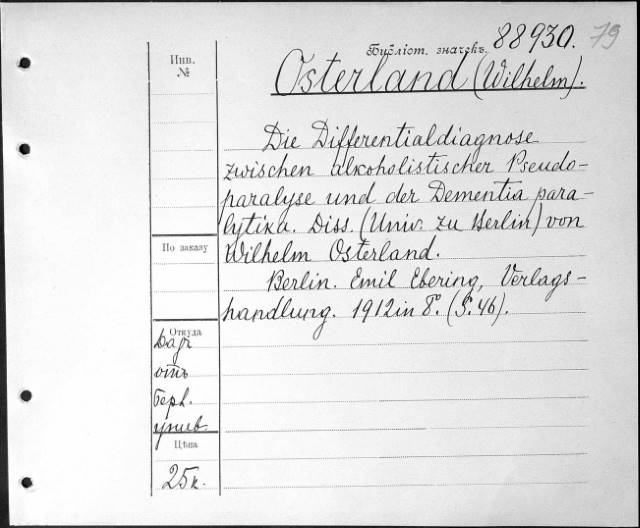 Библіот. значекъ. 88930. 79
Инв.
№
Osterland (Wilhelm).
Die Differentialdiagnose
zwischen alkoholistischer Pseudo-
paralyse und der Dementia para-
lytika. Diss. (Univ. zu Berlin) von
По заказу
Wilhelm Osterland.
Berlin. Emil Ebering, Verlags-
handlung. 1912 in 8°. (S. 46).
Откуда
Даръ
отъ
Берл.
унив.
Цѣна
25к.